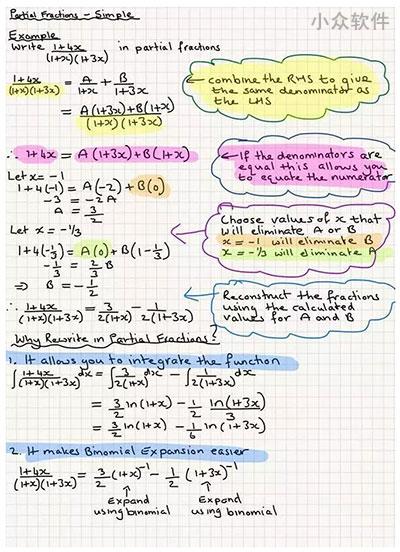 小众软件
Partial Fractions - Simple
Example
Write (1+4x)/((1+x)(1+3x)) in partial fractions
(1+4x)/((1+x)(1+3x)) = A/(1+x) + B/(1+3x)
= (A(1+3x)+B(1+x))/((1+x)(1+3x))
combine the RHS to give
the same denominator as
the LHS
∴ 1+4x = A(1+3x)+B(1+x)
If the denominators are
equal this allows you
to equate the numerator
Let x = -1
1+4(-1) = A(-2) + B(0)
-3 = -2A
A = 3/2
Let x = -1/3
1+4(-1/3) = A(0) + B(1-1/3)
-1/3 = 2/3 B
⇒ B = -1/2
Choose values of x that
will eliminate A or B
x = -1 will eliminate B
x = -1/3 will eliminate A
∴ (1+4x)/((1+x)(1+3x)) = 3/(2(1+x)) - 1/(2(1+3x))
Reconstruct the fractions
using the calculated
values for A and B
Why Rewrite in Partial Fractions?
1. It allows you to integrate the function
∫ (1+4x)/((1+x)(1+3x)) dx = ∫ 3/(2(1+x)) dx - ∫ 1/(2(1+3x)) dx
= 3/2 ln(1+x) - 1/2 ln(1+3x)/3
= 3/2 ln(1+x) - 1/6 ln(1+3x)
2. It makes Binomial Expansion easier
(1+4x)/((1+x)(1+3x)) = 3/2 (1+x)⁻¹ - 1/2 (1+3x)⁻¹
↑ ↑
Expand Expand
using binomial using binomial